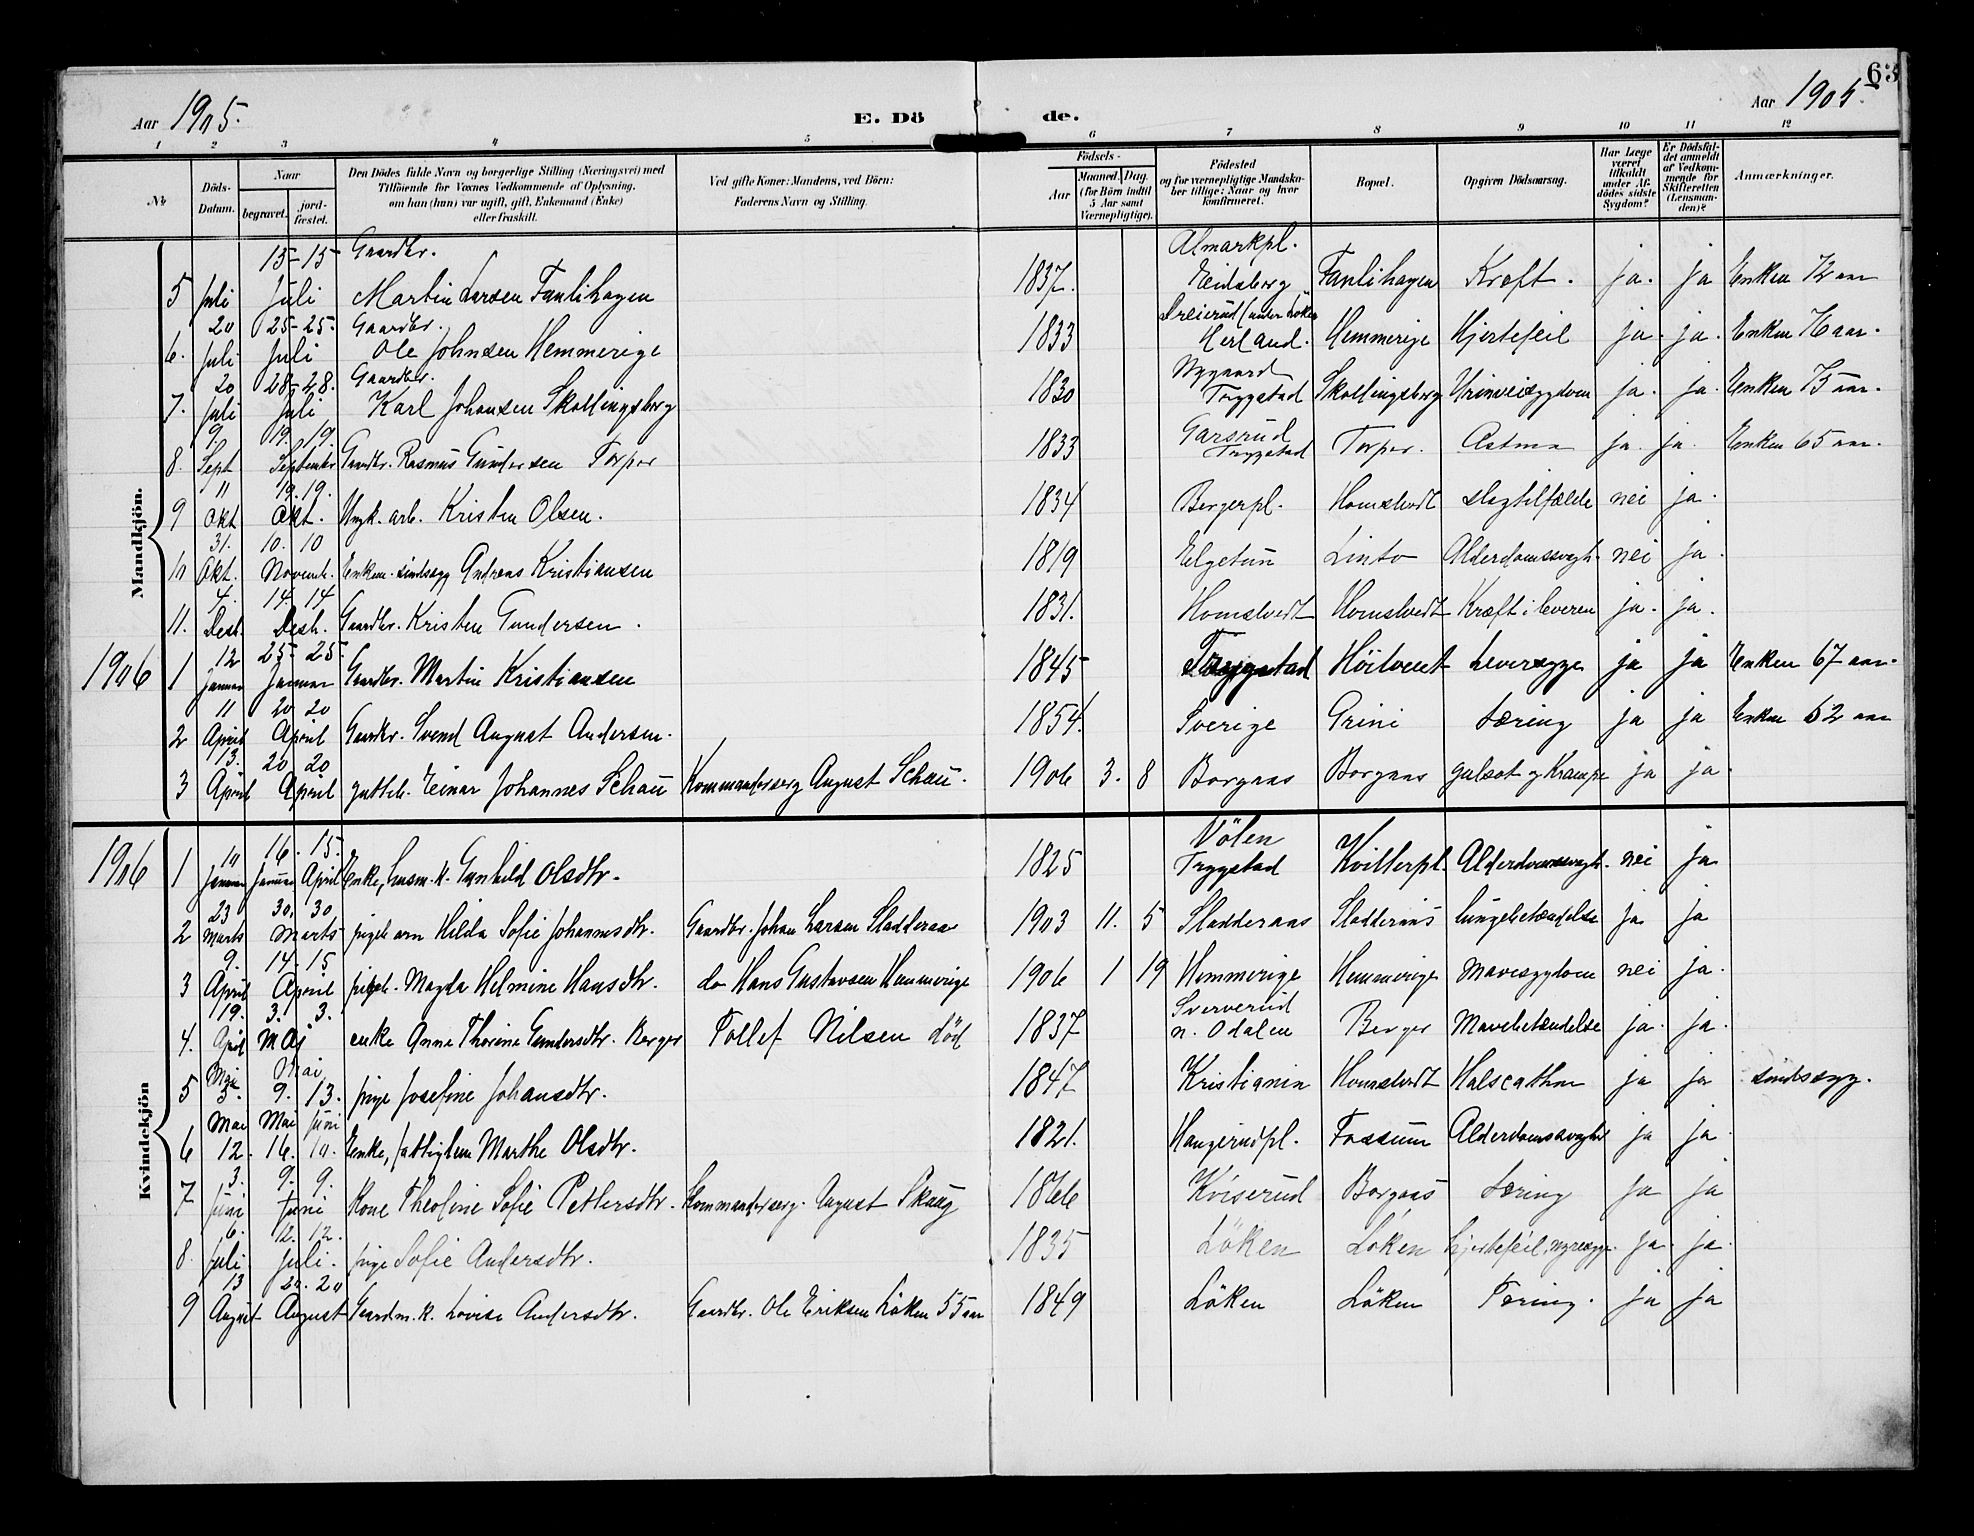 63
Aar 1905. E. Dö de. Aar 1905.
1 2 3 4 5 6 7 8 9 10 11 12
№ Döds-Datum. Naar begravet. jordfæstet. Den Dödes fulde Navn og borgerlige Stilling (Næringsvei) med Tilföiende for Voxnes Vedkommende af Oplysning, om han (hun) var ugift, gift, Enkemand (Enke) eller fraskilt. Ved gifte Koner: Mandens, ved Börn: Faderens Navn og Stilling. Födsels- Aar Maaned. Dag. (for Börn indtil 5 Aar samt Værnepligtige). Födested og for værnepligtige Mandskaber tillige: Naar og hvor konfirmeret. Bopæl. Opgiven Dödsaarsag. Har Læge været tilkaldt under Afdödes sidste Sygdom? Er Dödsfaldet anmeldt af Vedkommende for Skifteretten (Lensmanden)? Anmærkninger.
Mandkjön.
5 Juli 15-15 Juli Gaardbr. Martin Larsen Fanlihagen 1837. Almarkpl. Eidsberg Fanlihagen Kræft. ja. ja Enken 72 aar
6. 20 Juli 25-25. Juli Gaardbr. Ole Johnsen Hemmerige 1833 (under Löken Herland. Hemmerige Hjertefeil ja. ja. Enken 76 aar.
7. 20 Juli 28-28. Juli Gaardbr. Karl Johansen Skollingsberg 1830 Nygaard Trygstad Skollingsberg Urinveisygdom ja. ja. Enken 75 aar.
8. 9. Sept 19. 19. September Gaardbr. Rasmus Gundersen Torper 1833 Garsrud Trygstad Torper. Astma ja. ja. Enken 65 aar.
9 11 Okt 19. 19. Okt. Ungk. arb. Kristen Olsen. 1834 Bergerpl. Homslvedt Slagtilfælde nei ja.
10 31. Okt. 10. 10 Novemb. Enkem. sindssyg Andreas Kristiansen 1819 Elgetun Linto Alderdomssvagh. nei ja.
11. 4. Desb. 14. 14 Desb. Gaardbr. Kristen Gundersen. 1831. Homslvedt Homslvedt Kræft i leveren ja. ja.
1906 1 12 Januar 25- 25. Januar Gaardbr. Martin Kristiansen 1845 Trygstad Höitveit Leversyge ja ja Enken 67 aar.
2 11 April 20 20 April Gaardbr. Svend August Andersen. 1854. Sverige Grini Tæring ja ja Enken 52 aar
3 13. April 20 20 April gutteb. Einar Johannes Schau Kommandersverg August Schau. 1906 3. 8 Borgaas Borgaas gulsot og Krampe ja ja.
Kvindekjön
1906 1 10 Januar 16. 15. Januar April Enke, husm. k. Gunhild Olsdtr. 1825 Völen Trygstad Kvitterpl. Alderdomssvagh. nei ja
2 23 Marts 30. 30 Marts pigeb arn Hilda Sofie Johannsdtr. Gaardbr. Johan Larsen Sladderaas 1903 11. 5 Sladderaas Sladderaas lungebetændelse ja ja
3 9. April 14. 15 April pigeb. Magda Helmine Hansdtr. do Hans Gustavsen Hemmerige 1906 1 19 Hemmerige Hemmerige Mavesygdom nei ja.
4. 19. April 3. 3. Mai enke Anne Thorine Gundersdtr. Berger Tollef Nilsen död 1837 n. Odalen Berger Mavebetændelse ja. ja.
5 Mai 3. Mai 9. 13. pige Josefine Johansdtr. 1847 Kristiania Homslvedt Halscathar ja ja sindssyg.
6 Mai 12. Mai Juni 16. 10. Enke, fattiglem Marthe Olsdtr. 1821. Haugerudpl. Fossum Alderdomssvaghed ja ja.
7 3. Juni 9. 9. Juni Kone Theoline Sofie Pettersdtr. Kommandersverg. August Skaug 1866 Kviserud Borgaas Tæring ja ja
8. 6. Juli 12. 12. Juli. pige Sofie Andersdtr. 1835 Löken Löken hjertefeil, nyresyge. ja. ja.
9 13 August 20. 20 August Gaardm. k. Lovise Andersdtr. Gaardbr. Ole Eriksen Löken 55 aar 1849 Löken Löken Tæring. ja ja